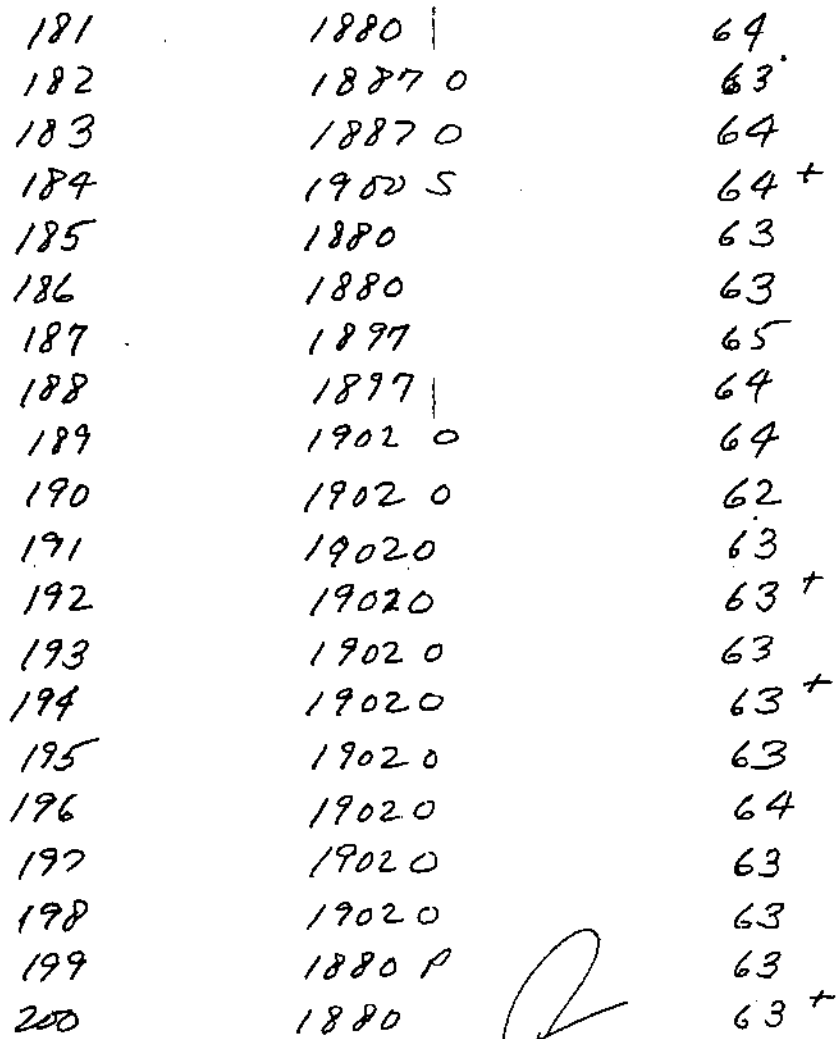 181 1880 | 64
182 1887 O 63
183 1887 O 64
184 1900 S 64 +
185 1880 63
186 1880 63
187 1897 65
188 1897 | 64
189 1902 O 64
190 1902 O 62
191 1902 O 63
192 1902 O 63 +
193 1902 O 63
194 1902 O 63 +
195 1902 O 63
196 1902 O 64
197 1902 O 63
198 1902 O 63
199 1880 P 63
200 1880 63 +